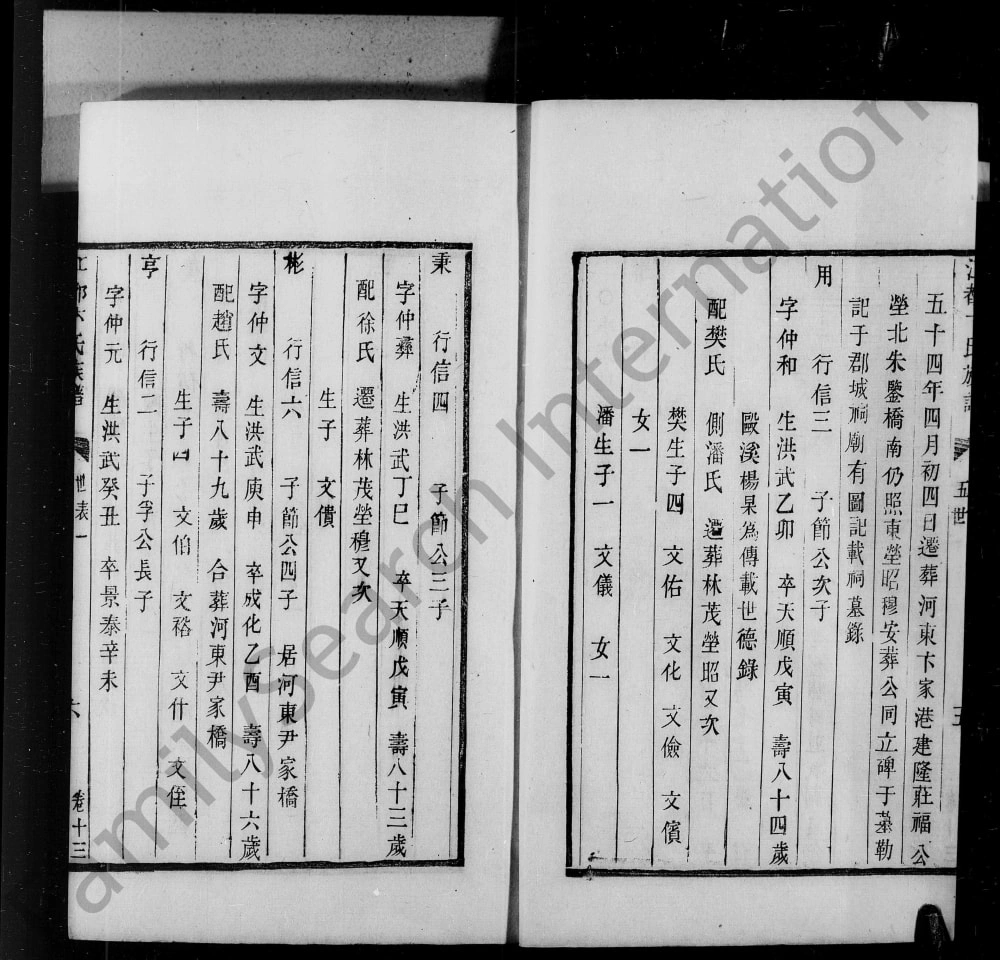 五世
五十四年四月初四日遷葬河東卞家港建隆莊福公
塋北朱鑒橋南仍照東塋昭穆安葬公同立碑于墓勒
記于郡城祠廟有圖記載祠墓錄
用 行信三 子節公次子
字仲和 生洪武乙卯 卒天順戊寅 壽八十四歲
毆溪楊杲為傳載世德錄
配樊氏 側潘氏 遷葬林茂塋昭又次
樊生子四 文佑 文化 文儉 文儐
女一
潘生子一 文儀 女一
秉 行信四 子節公三子
字仲彝 生洪武丁巳 卒天順戊寅 壽八十三歲
配徐氏 遷葬林茂塋穆又次
生子 文僓
彬 行信六 子節公四子 居河東尹家橋
字仲文 生洪武庚申 卒成化乙酉 壽八十六歲
配趙氏 壽八十九歲 合葬河東尹家橋
生子四 文伯 文裕 文什 文侄
亨 行信二 子孚公長子
字仲元 生洪武癸丑 卒景泰辛未
氏族譜 世表一 六 卷十三
amilySearch International